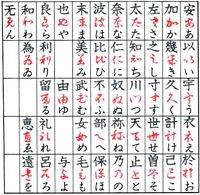 安あ以い宇う衣え於お
加か幾き久く計け己こ
左さ之し寸す世せ曽そ
太た知ち川つ天て止と
奈な仁に奴ぬ祢ね乃の
波は比ひ不ふ部へ保ほ
末ま美み武む女め毛も
也や由ゆ与よ
良ら利り留る礼れ呂ろ
和わ為ゐ恵ゑ遠を
无ん